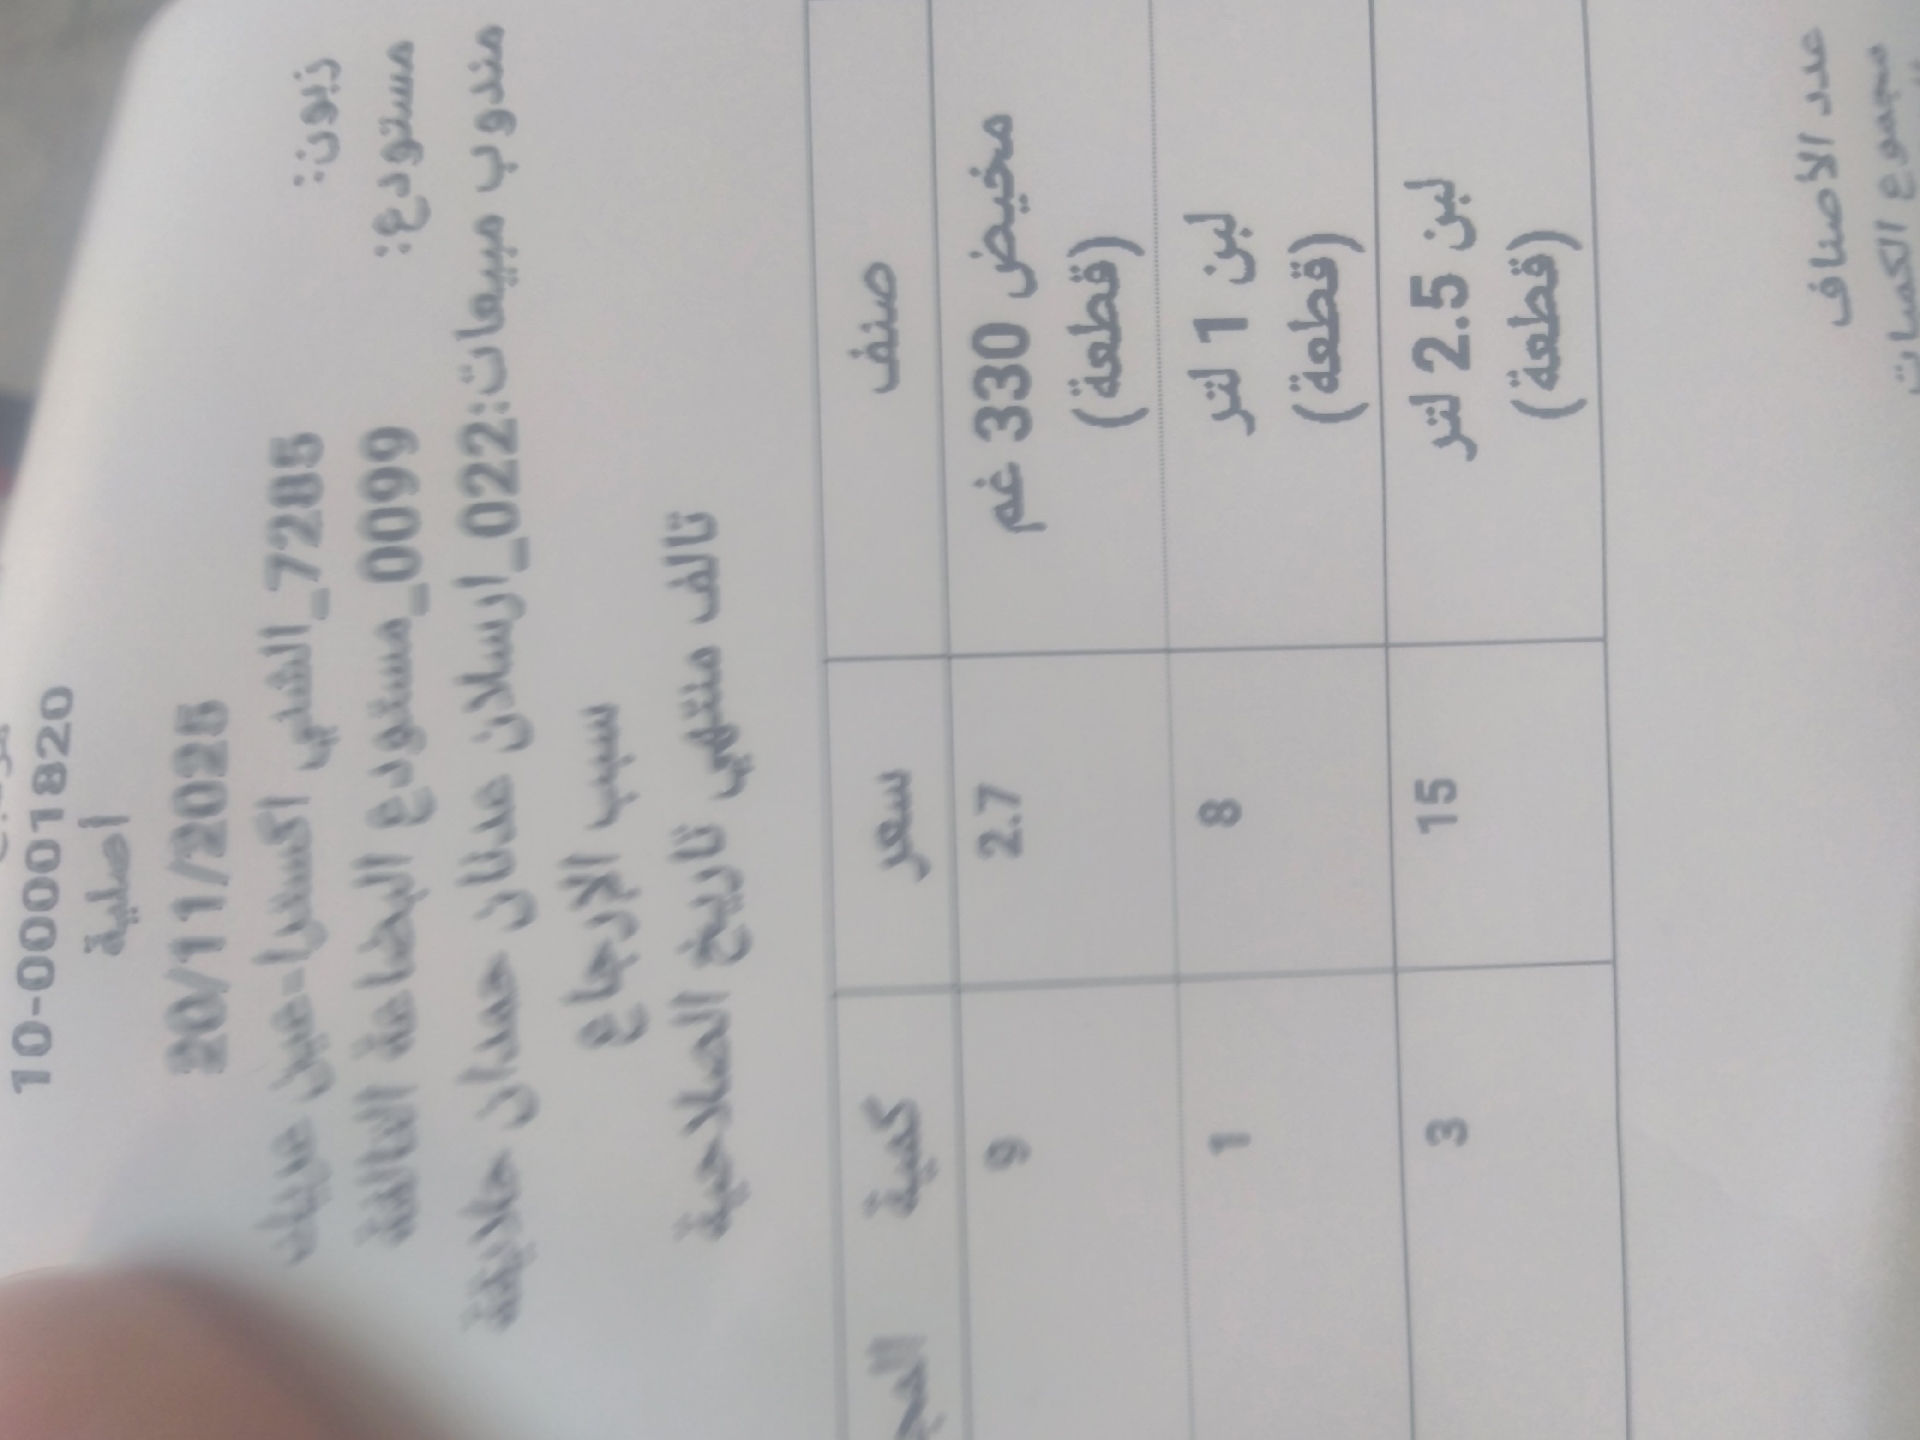 10-00001820
أصلية
20/11/2025
زبون: 7285_الشني اكسترا-عين
مستودع: 0099_مستودع البضاعة التالفة
مندوب مبيعات:022_ارسلان عدنان حمدان حلايقة
سبب الإرجاع
تالف منتهي تاريخ الصلاحية
صنف سعر كمية
مخيض 330 غم 2.7 9
(قطعة)
لبن 1 لتر 8 1
(قطعة)
لبن 2.5 لتر 15 3
(قطعة)
عدد الأصناف
مجموع الكميات